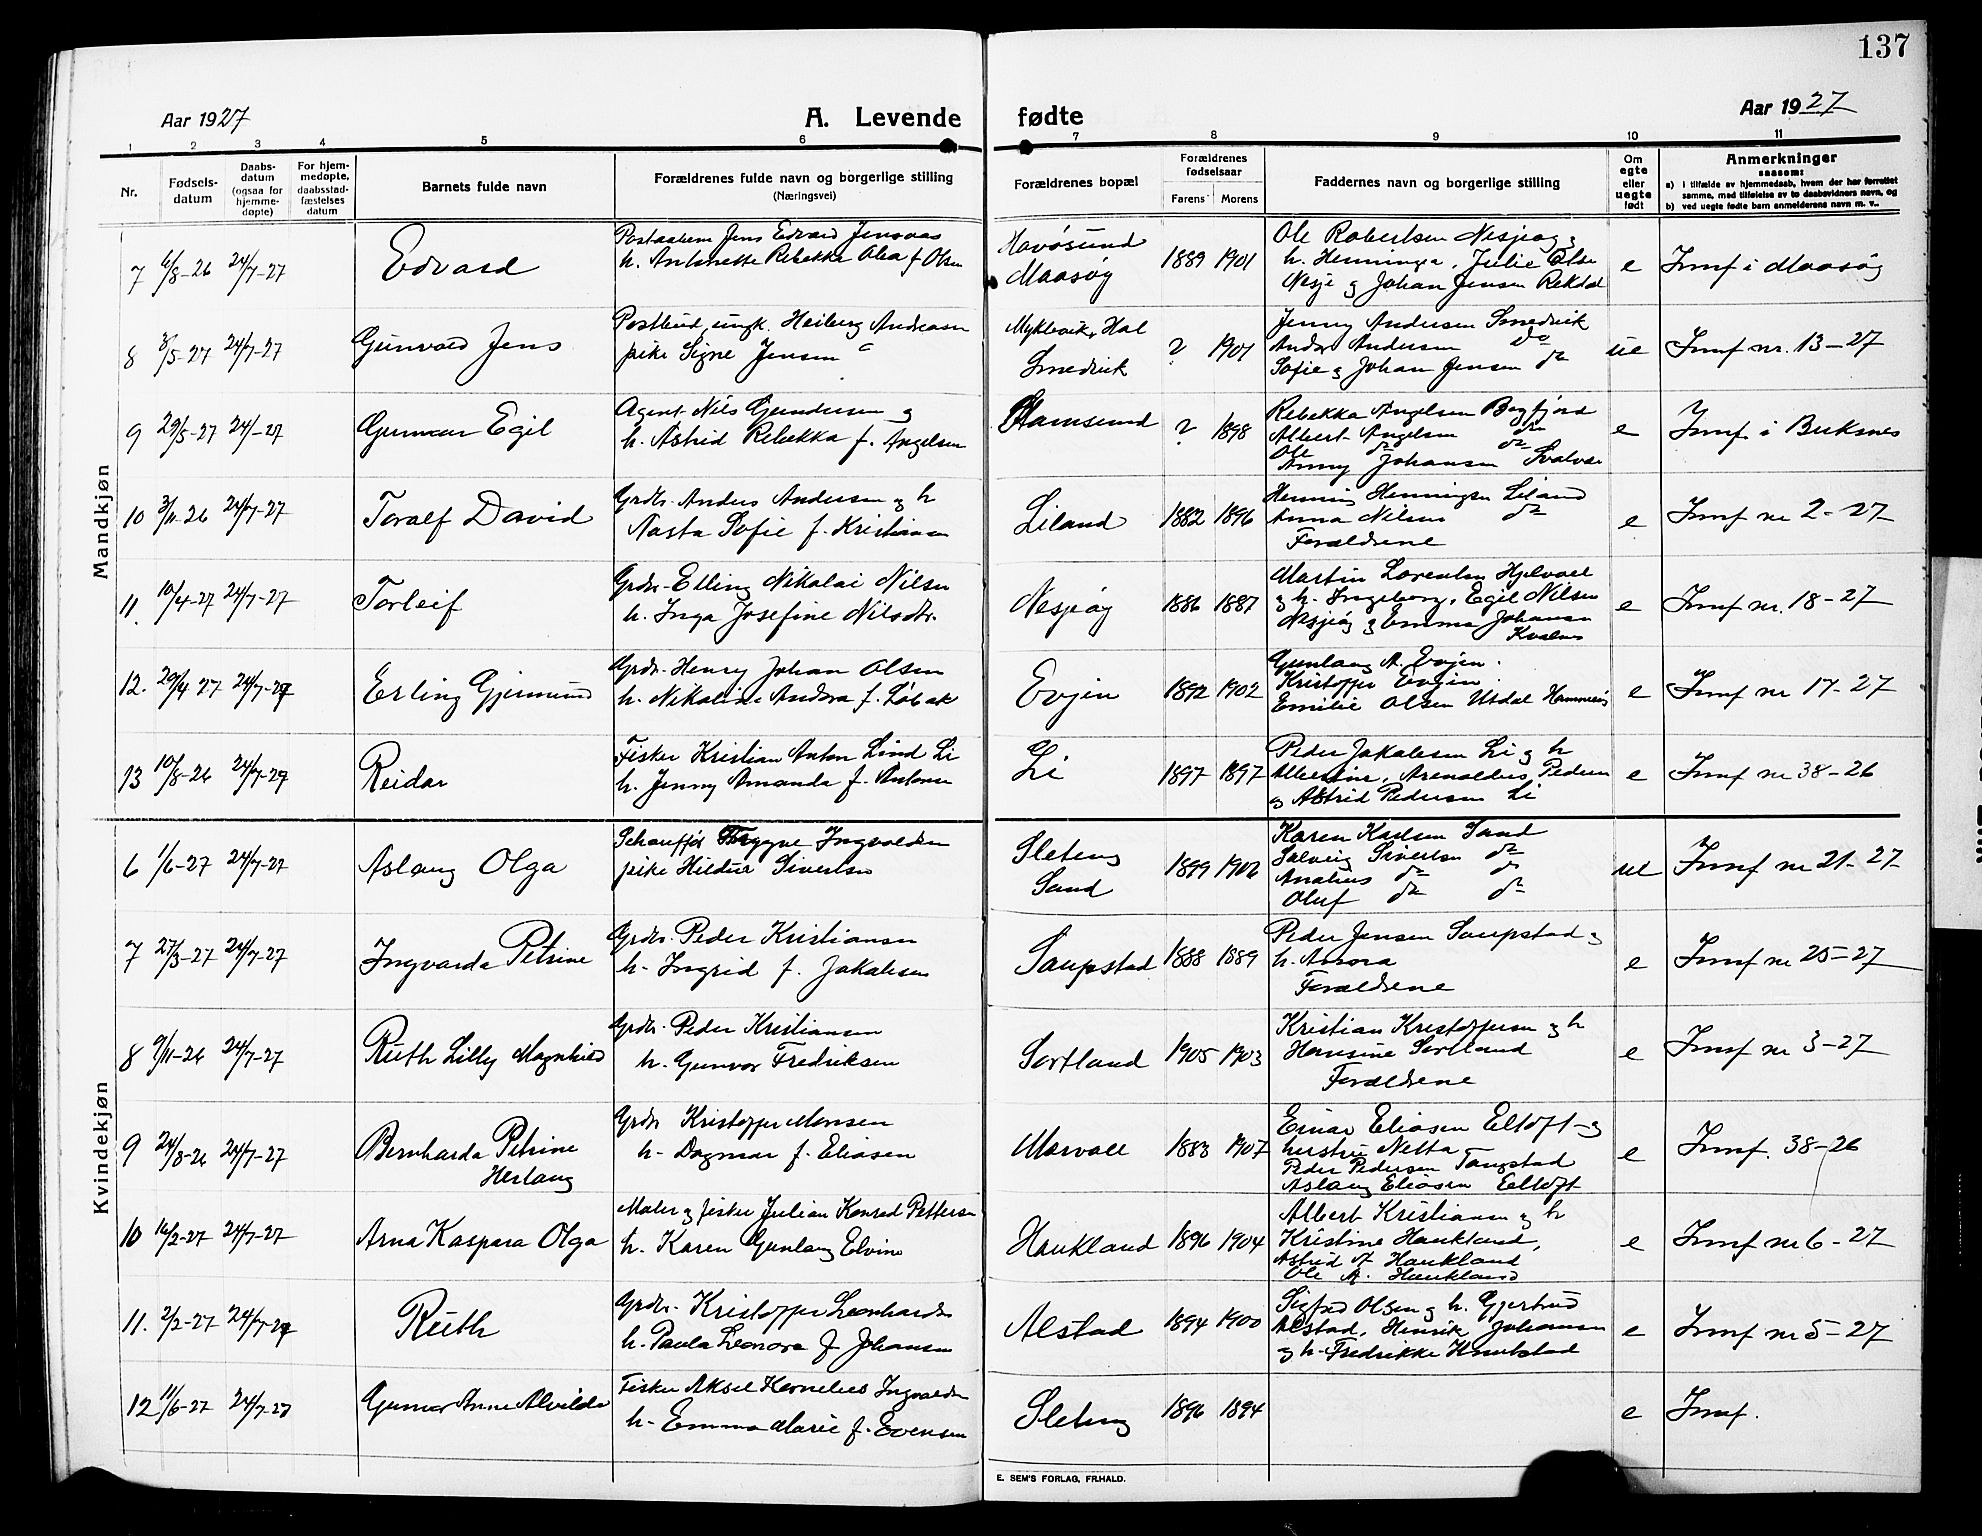 137
Aar 1927 A. Levende fødte Aar 1927
1 2 3 4 5 6 7 8 9 10 11
Nr. Fødsels-datum Daabs-datum (ogsaa for hjemme-døpte) For hjem-medøpte, daabsstad-fæstelses datum Barnets fulde navn Forældrenes fulde navn og borgerlige stilling (Næringsvei) Forældrenes bopæl Forældrenes fødselsaar Farens Morens Faddernes navn og borgerlige stilling Om egte eller uegte født Anmerkninger saasom:
a) i tilfælde av hjemmedaab, hvem der har forrettet samme, med tilføielse av to daabsvidners navn, og
b) ved uegte fødte barn anmelderens navn m. v..
Mandkjøn
7 6/8-26 24/7-27 Edvard
Jens Edvard Jensaas
h. Antonette Rebekka Olea f Olsen
Havøsund
Maasøy
1889 1901
Ole Robertsen Nesjeøy
h. Henninga, Julie Olse
Nesje og Johan Jensen Rekdal
e Innf i Maasøy
8 8/5-27 24/7-27 Gunvald Jens
Postbud, ungk. Heiberg Andreasen
pike Signe Jensen
Smedvik
? 1901
Jenny Andersen Smedvik
Andr Andersen do
Sofie og Johan Jensen do
ue Innf nr. 13-27
9 29/5-27 24/-27 Gunnar Egil
Agent Nils Gundersen og
h. Astrid Rebekka f. Angelsen
Stamsund
? 1898
Rebekka Angelsen Bogfjord
Albert Angelsen do
Ole do do
Anny Johansen Svolvær
e Innf. i Buksnes
10 3/11-26 24/7-27 Toralf David
Grdbr. Anders Andersen og h
Aasta Sofie f. Kristiansen
Liland
1882 1896
Henning Henningsen Liland
Anna Nilsen do
Forældrene
e Innf nr 2-27
11. 10/4-27 24/7-27 Torleif
Grdbr. Elling Nikolai Nilsen
h. Inga Josefine Nilsdtr.
Nesjeøy
1886 1887
Martin Lorentsen Hjelvoll
og h. Ingeborg, Egil Nilsen
Nesjeøy og Emma Johansen
Kvalnes
e Innf nr. 18-27
12. 29/4 27 24/7-27 Erling Gjermund
Grdbr. Henry Johan Olsen
h. Nikoline Andora f.
Evjen
1892 1902
Gunlaug A. Evjen.
Kristoffer Evjen.
Emilie Olsen Utdal Hammerøy
e Innf nr 17-27
13 10/8-26 24/7-27 Reidar
Fisker Kristian Anton Lind Li
h. Jenny Amanda f. Antonsen
Li
1897 1897
Peder Jakobsen Li og h
Albertine, Arnoldus Pedersen
og Astrid Pedersen Li
e Innf nr 38-26
Kvindekjøn
6 1/6-27 24/7-27 Aslaug Olga
Schauffør Trygve Ingvaldsen
pike Hildur Sivertsen
Sleteng
Sand
1899 1902
Karen Karlsen Sand
Solveig Sivertsen do
Analius do do
Oluf do do
ue Innf nr 21-27
7 27/3-27 24/7-27 Ingvarda Petrine
Grdbr. Peder Kristiansen
h. Ingrid f. Jakobsen
Saupstad
1888 1889
Peder Jensen Saupstad og
h. Anora
Forældrene
e Innf nr 25-27
8 9/11-26 24/7-27 Ruth Lilly Magnhild
Grdbr. Peder Kristiansen
h. Gunvor Fredriksen
Sortland
1905 1903
Kristian Kristoffersen og h
Hansine Sortland
Forældrene
e Innf nr 3-27
9 24/8-26 24/7-27 Bernharda Petrine
Herlaug
Grdbr Kristoffer Monsen
h. Dagmar f. Eliasen
Morvoll
1883 1907
Einar Eliasen Eltoft og
hustru Netta
Peder Pedersen Tangstad
Aslaug Eliasen Eltoft
e Innf. 38-26
10 16/2-27 24/7-27 Arna Kaspara Olga
Maler og fisker Julian Konrad Pettersen
h. Karen Gunlaug Elvine
Haukland
1896 1904
Albert Kristiansen og h
Kristine Haukland,
Astrid A Haukland
Ole A. Haukland
e Innf nr 6-27
11. 2/2-27 24/7-27 Ruth
Grdbr. Kristoffer Leonhardsen
h. Paula Leonora f Johansen
Alstad
1894 1900
Sigfred Olsen og h. Gjertrud
Alstad, Henrik Johansen
og h. Fredrikke Knutstad
e Innf nr 5-27
12 11/6-27 24/7-27 Gunvor Anne Alvilde
Fisker Aksel Kornelius Ingvaldsen
h. Emma Marie f. Evensen
Sleteng
1896 1894
e Innf.
E. SEM'S FORLAG, FR.HALD.